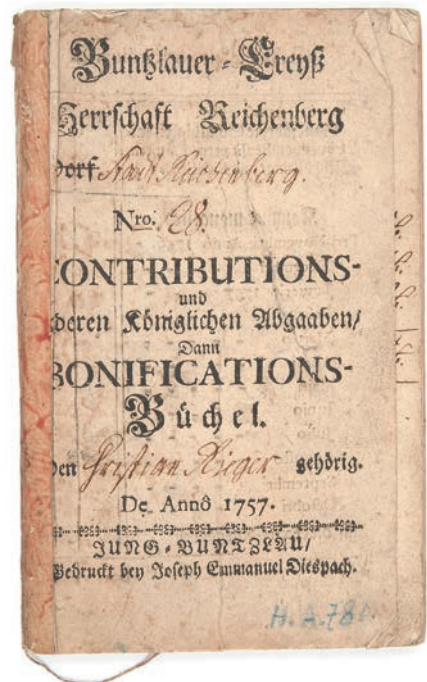 Buntzlauer-Creyß
Herrschaft Reichenberg
dorf Stadt Reichenberg.
Nro. 28.
CONTRIBUTIONS-
und
deren Königlichen Abgaaben/
Dann
BONIFICATIONS-
Büchel.
den Christian Rieger gehörig.
De Annô 1757.
JUNG-BUNTZLAU/
Gedruckt bey Joseph Emmanuel Diespach.
H.A.78